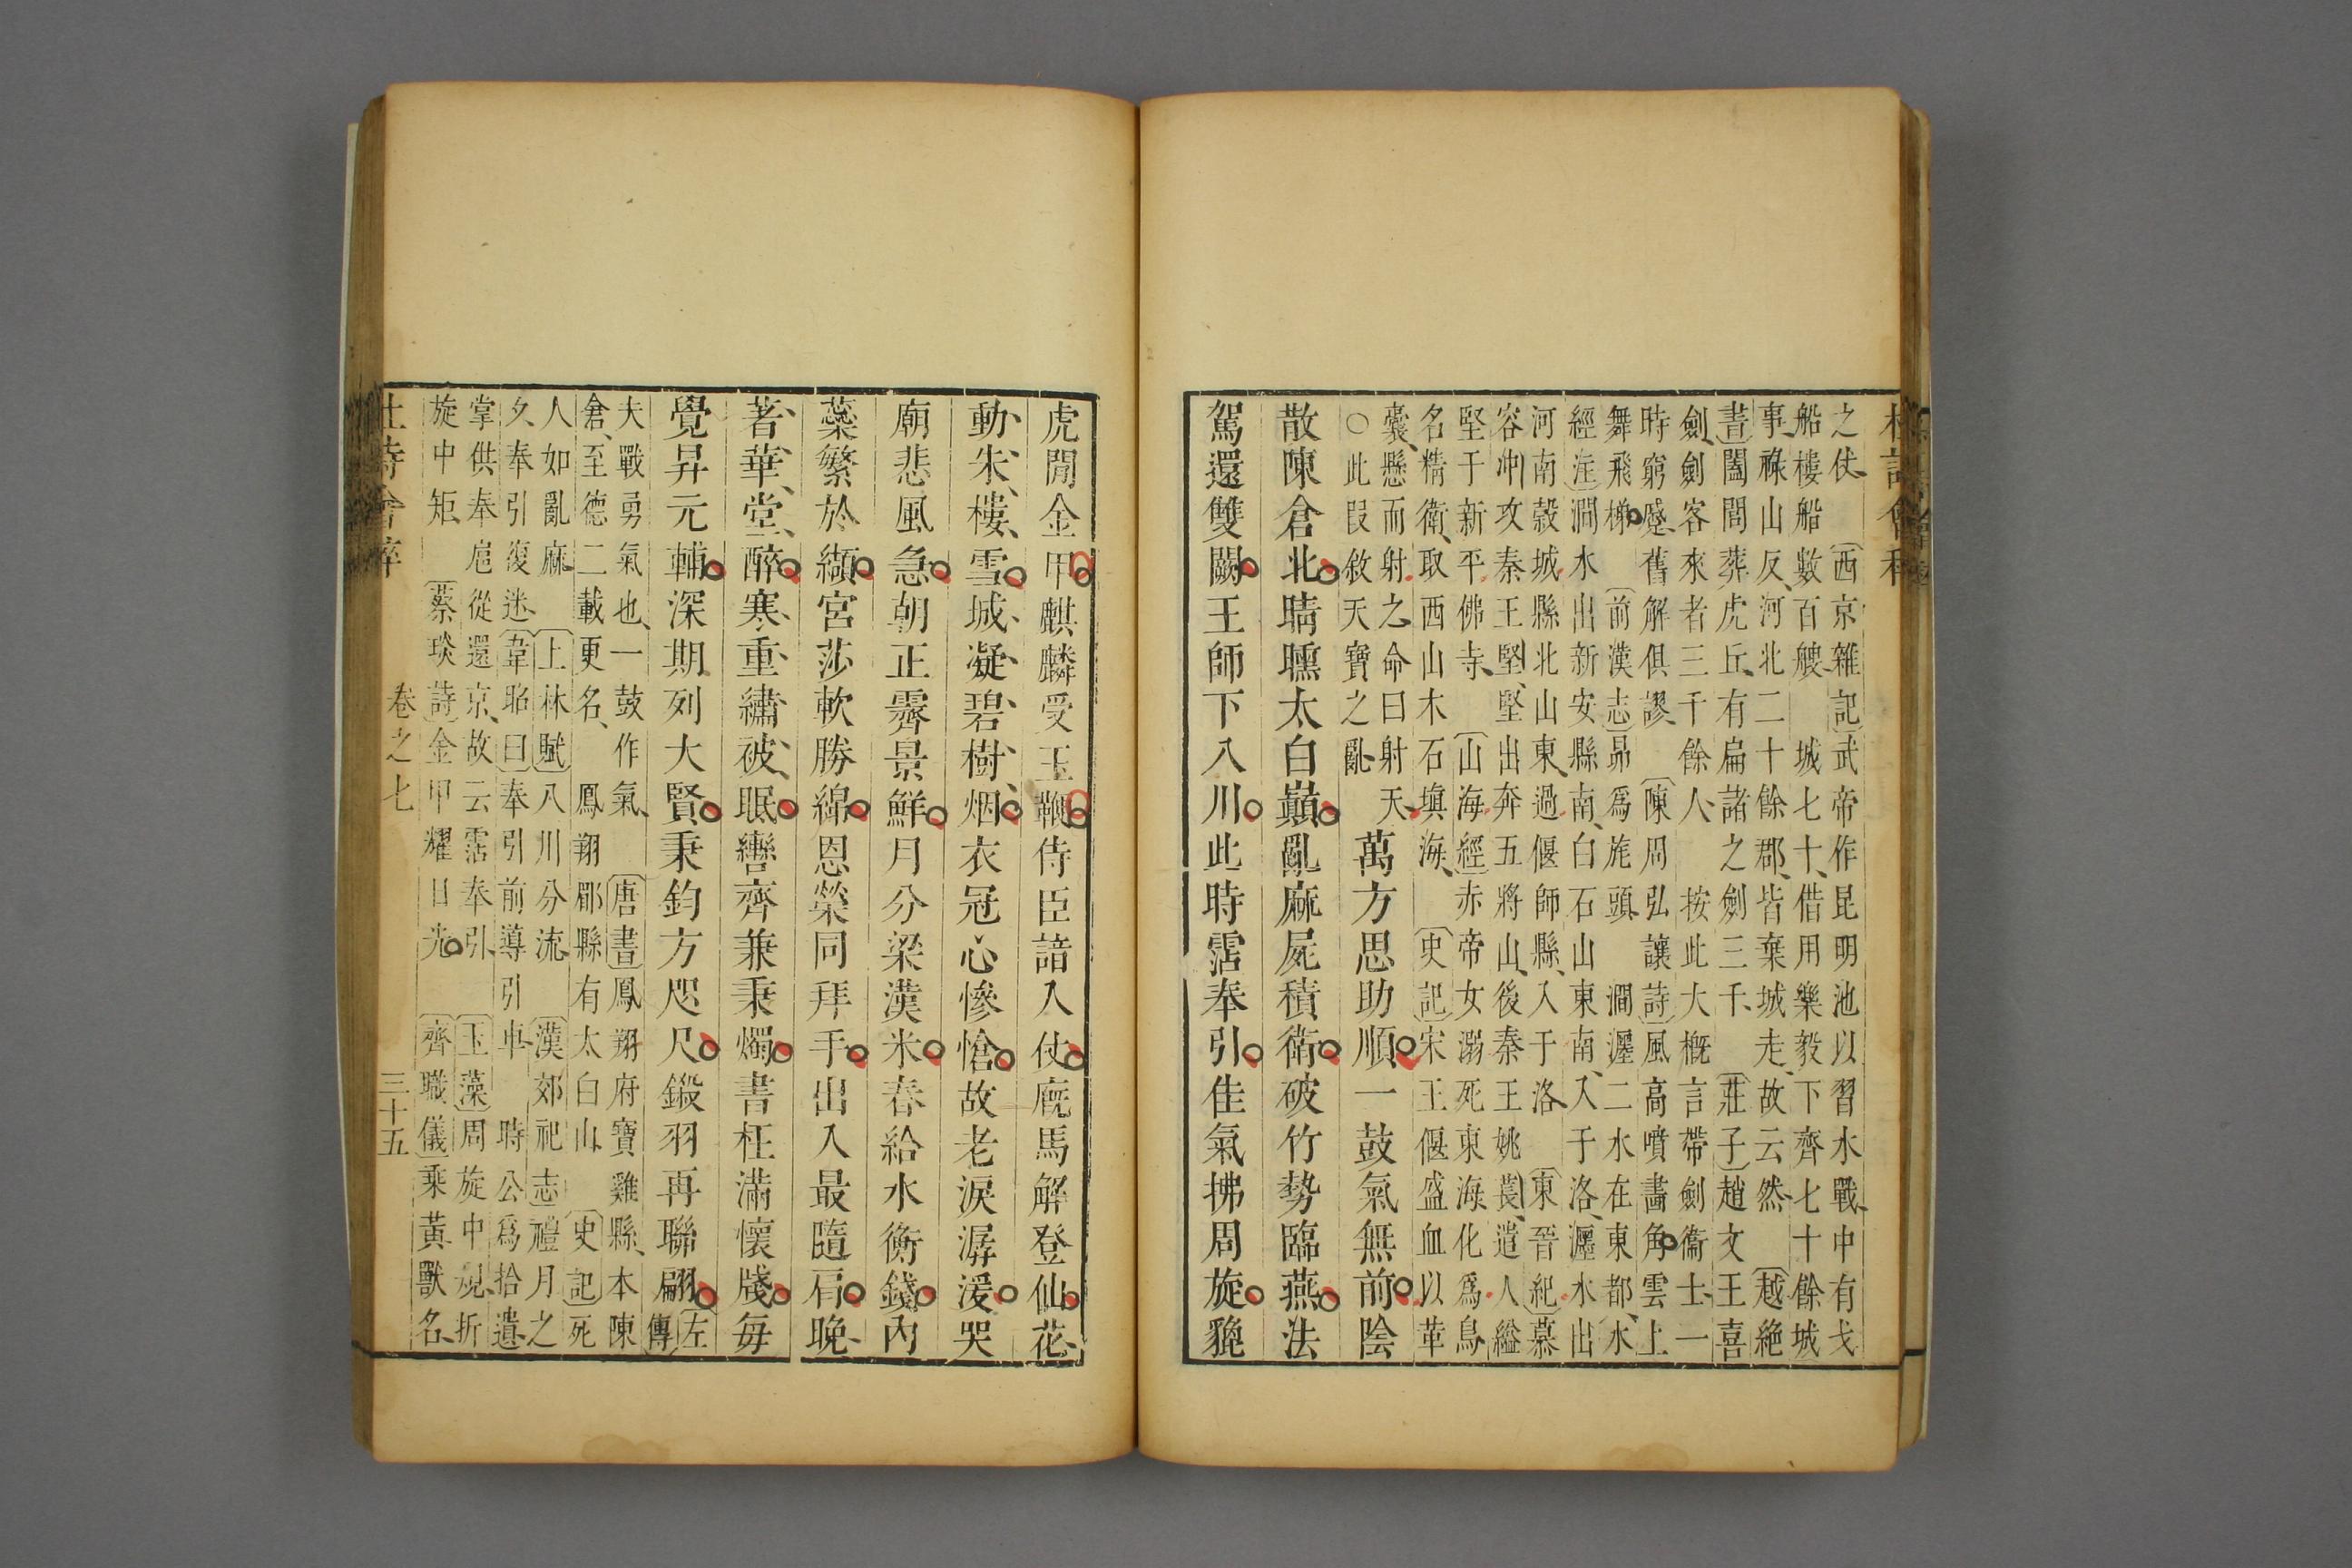 之仗 西京雜記武帝作昆明池以習水戰中有戈
船樓船數百艘 城七十借用樂毅下齊七十餘城
事祿山反河北二十餘郡皆棄城走故云然 越絶
書闔閭葬虎丘有扁諸之劍三千 莊子趙文王喜
劍劍客來者三千餘人 按此大概言帶劍衞士一
時窮蹙舊解俱謬 陳周弘讓詩風高噴畵角雲上
舞飛梯 前漢志昴爲旄頭 澗瀍二水在東都水
經注澗水出新安縣南白石山東南入于洛瀍水出
河南穀城縣北山東過偃師縣入于洛 東晉紀慕
容冲攻秦王堅堅出奔五將山後秦王姚萇遣人縊
堅于新平佛寺 山海經赤帝女溺死東海化爲鳥
名精衛取西山木石塡海 史記宋王偃盛血以革
囊懸而射之命曰射天
○此叚敘天寶之亂
萬方思助順一鼓氣無前陰
散陳倉北晴曛太白巔亂麻屍積衛破竹勢臨燕法
駕還雙闕王師下八川此時霑奉引佳氣拂周旋貔
虎閒金甲麒麟受玉鞭侍臣諳入仗廐馬解登仙花
動朱樓雪城凝碧樹烟衣冠心慘愴故老淚潺湲哭
廟悲風急朝正霽景鮮月分梁漢米春給水衡錢內
蘂繁於纈宮莎軟勝綿恩榮同拜手出入最隨肩晚
著華堂醉寒重繡被眠轡齊兼秉燭書枉滿懷牋每
覺昇元輔深期列大賢秉鈞方咫尺鎩羽再聯翩
左傳
夫戰勇氣也一鼓作氣 唐書鳳翔府寶雞縣本陳
倉至德二載更名 鳳翔郿縣有太白山 史記死
人如亂麻 上林賦八川分流 漢郊祀志禮月之
夕奉引復迷韋昭曰奉引前導引車 時公爲拾遺
掌供奉扈從還京故云霑奉引 玉藻周旋中規折
旋中矩 蔡琰詩金甲耀日光 齊職儀乗黃獸名
卷之七
三十五